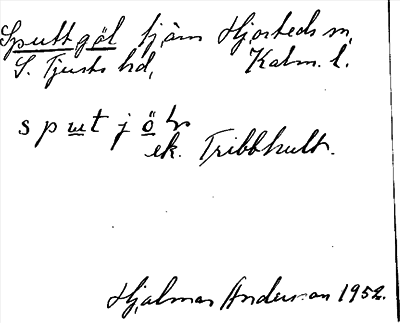 Sputtgöl tjärn Hjorteds sn,
S. Tjusts hd, Kalm. l.
sputjö
ek. Tribbhult.
Hjalmar Anderson 1952.